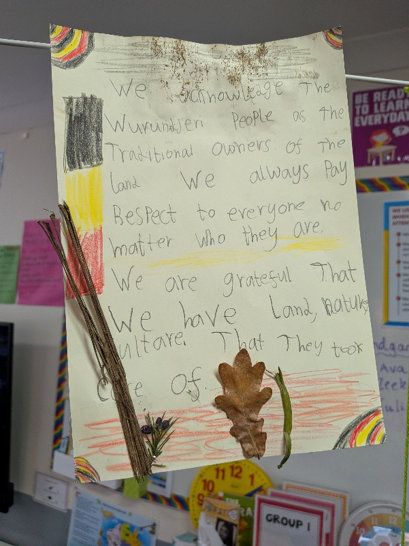 We acknowledge The
Wurundjeri People as the
Traditional Owners of The
land We always Pay
Respect to everyone no
matter who they are.
We are grateful That
We have Land, nature
ulture. That They took
Care of.
BE READY
TO LEARN
EVERYDAY
12
GROUP 1